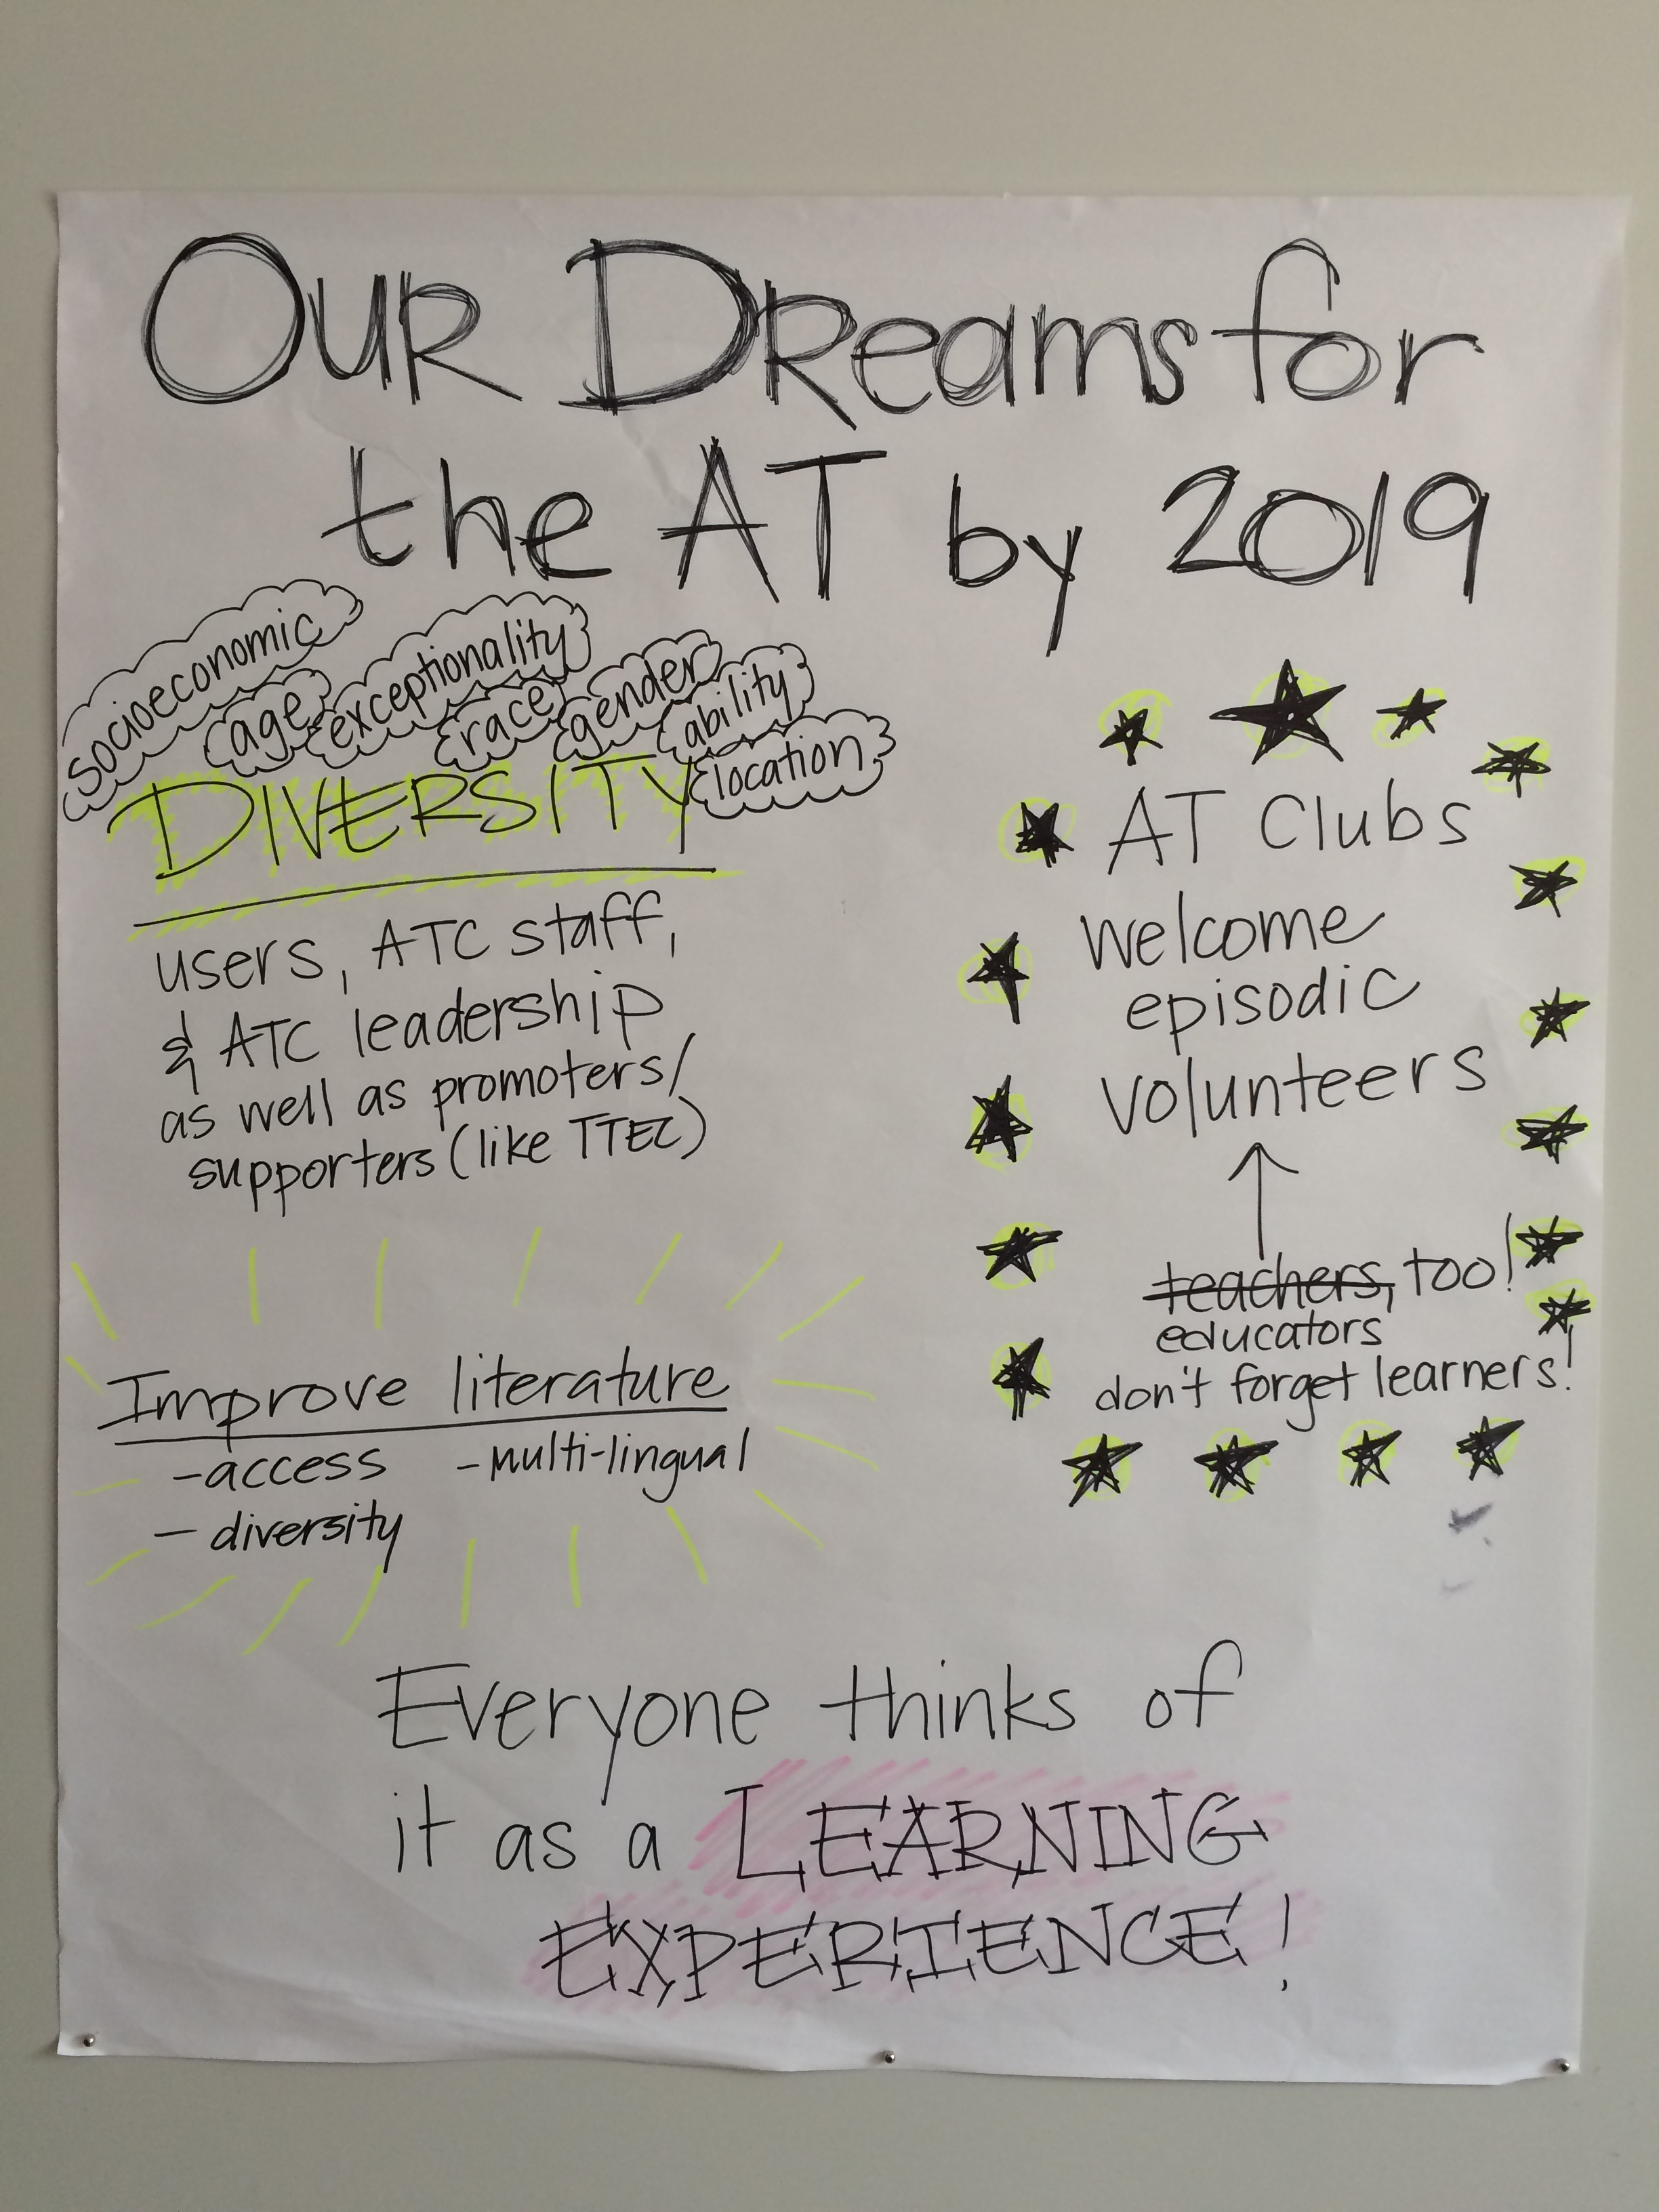 OUR DReams for
the AT by 2019
socioeconomic
age
exceptionality
race
gender
ability
location
DIVERSITY
users, ATC staff,
& ATC leadership
as well as promoters/
supporters (like TTEC)
AT Clubs
welcome
episodic
volunteers
teachers, too!
educators
don't forget learners!
Improve literature
-access -multi-lingual
- diversity
Everyone thinks of
it as a LEARNING
EXPERIENCE!